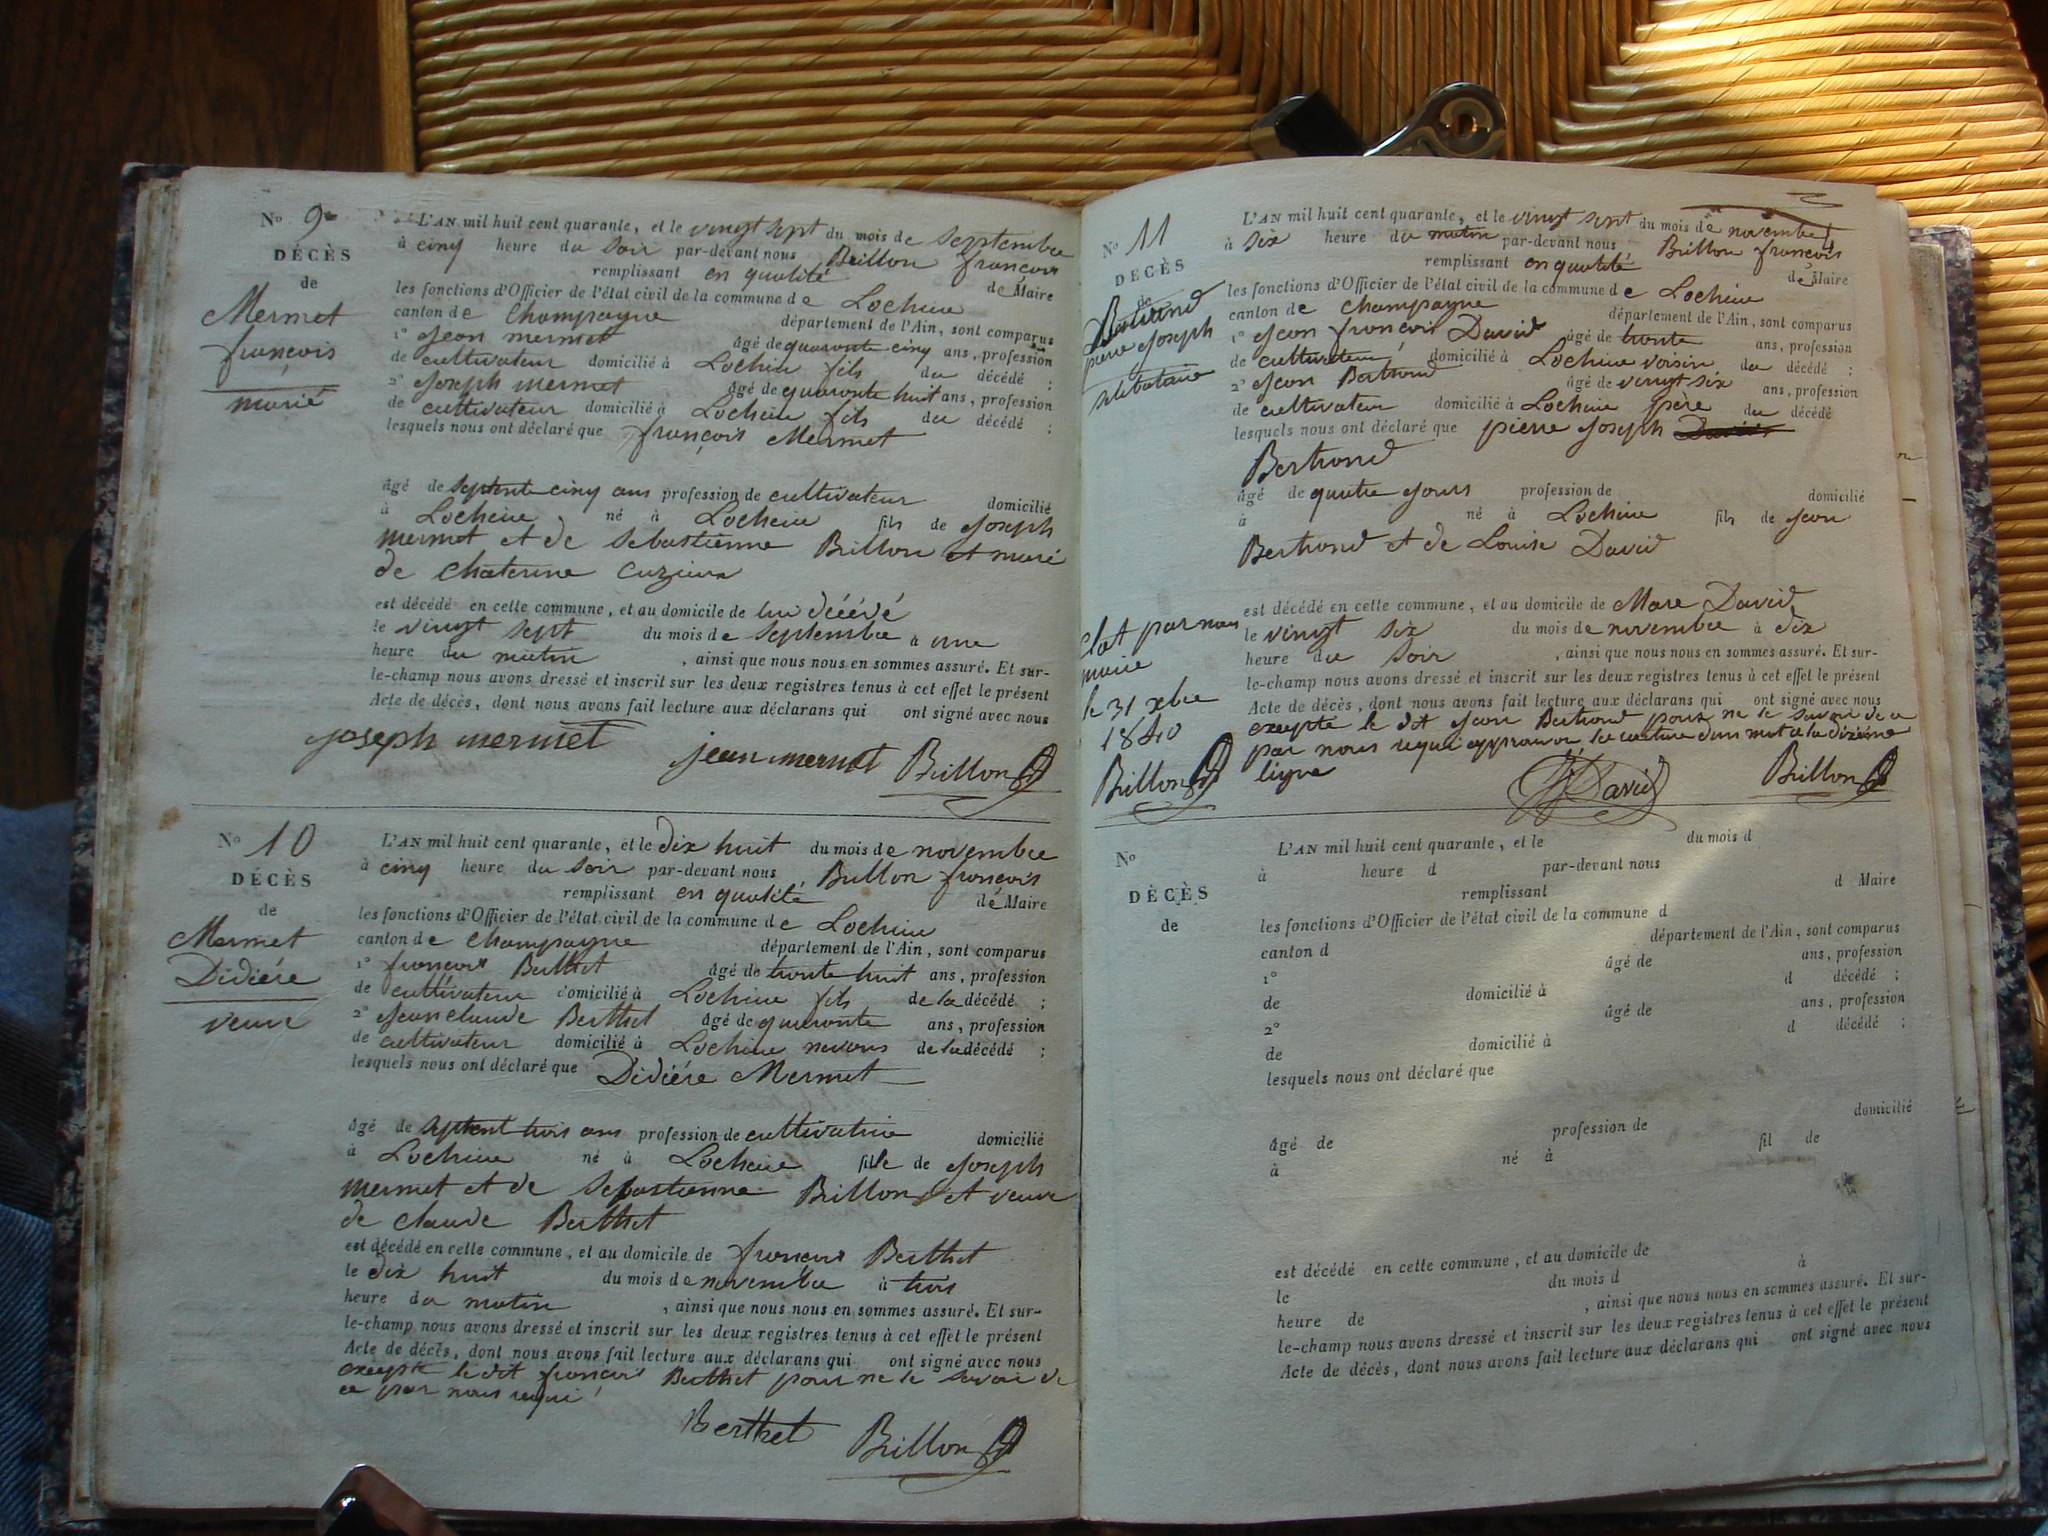 No 9
DÉCÈS
de
Mermet
françois
marié
L'AN mil huit cent quarante, et le vingt sept du mois de septembre
à cinq heure du soir par-devant nous Brillon françois
remplissant en qualité de Maire
les fonctions d'Officier de l'état civil de la commune de Lochieu
canton de Champagne département de l'Ain, sont comparus
1° Jean mermet âgé de quarante cinq ans, profession
de cultivateur domicilié à Lochieu fils du décédé ;
2° Joseph Mermet âgé de quarante huit ans, profession
de cultivateur domicilié à Lochieu fils du décédé ;
lesquels nous ont déclaré que françois Mermet
âgé de septente cinq ans profession de cultivateur domicilié
à Lochieu né à Lochieu fils de Joseph
mermet et de Sebastienne Brillon et marié
de Chaterine Cuzieux
est décédé en cette commune, et au domicile de lui décédé
le vingt sept du mois de septembre à une
heure du matin , ainsi que nous nous en sommes assuré. Et sur-
le-champ nous avons dressé et inscrit sur les deux registres tenus à cet effet le présent
Acte de décès, dont nous avons fait lecture aux déclarans qui ont signé avec nous
joseph mermet jean mermet Brillon
No 10
DÉCÈS
de
Mermet
Didiére
veuve
L'AN mil huit cent quarante, et le dix huit du mois de novembre
à cinq heure du soir par-devant nous Brillon françois
remplissant en qualité de Maire
les fonctions d'Officier de l'état civil de la commune de Lochieu
canton de Champagne département de l'Ain, sont comparus
1° françois Berthet âgé de trente huit ans, profession
de cultivateur domicilié à Lochieu fils de la décédé ;
2° Jean claude Berthet âgé de quarante ans, profession
de cultivateur domicilié à Lochieu nevous de la décédé ;
lesquels nous ont déclaré que Didiére Mermet
âgé de septent trois ans profession de cultivatrice domicilié
à Lochieu né à Lochieu fille de Joseph
mermet et de Sebastienne Brillon et veuve
de claude Berthet
est décédé en cette commune, et au domicile de françois Berthet
le dix huit du mois de novembre à trois
heure du matin , ainsi que nous nous en sommes assuré. Et sur-
le-champ nous avons dressé et inscrit sur les deux registres tenus à cet effet le présent
Acte de décès, dont nous avons fait lecture aux déclarans qui ont signé avec nous
exepte le dit françois Berthet pour ne le savoir de
ce par nous requi
Berthet Brillon
No 11
DÉCÈS
de
Bertrand
pierre Joseph
selebataire
L'AN mil huit cent quarante, et le vingt sept du mois de novembre
à six heure du matin par-devant nous Brillon françois
remplissant en qualité de Maire
les fonctions d'Officier de l'état civil de la commune de Lochieu
canton de Champagne département de l'Ain, sont comparus
1° Jean françois David âgé de trente ans, profession
de cultivateur domicilié à Lochieu voisin du décédé ;
2° Jean Bertrand âgé de vingt six ans, profession
de cultivateur domicilié à Lochieu père du décédé
lesquels nous ont déclaré que pierre Joseph David
Bertrand
âgé de quatre jours profession de domicilié
à né à Lochieu fils de Jean
Bertrand et de Louise David
est décédé en cette commune, et au domicile de Mare David
le vingt six du mois de novembre à dix
heure du soir , ainsi que nous nous en sommes assuré. Et sur-
le-champ nous avons dressé et inscrit sur les deux registres tenus à cet effet le présent
Acte de décès, dont nous avons fait lecture aux déclarans qui ont signé avec nous
exepte le dit Jean Bertrand pour ne le savoir de ce
par nous requi approuvé la rature d'un mot a la dixieme
ligne
David Brillon
clot par nous
maire
le 31 xbre
1840
Brillon
No
DÉCÈS
de
L'AN mil huit cent quarante, et le du mois d
à heure d par-devant nous
remplissant d Maire
les fonctions d'Officier de l'état civil de la commune d
canton d département de l'Ain, sont comparus
1° âgé de ans, profession
de domicilié à d décédé ;
2° âgé de ans, profession
de domicilié à d décédé ;
lesquels nous ont déclaré que
âgé de profession de domicilié
à né à fil de
est décédé en cette commune, et au domicile de
le du mois d à
heure de , ainsi que nous nous en sommes assuré. Et sur-
le-champ nous avons dressé et inscrit sur les deux registres tenus à cet effet le présent
Acte de décès, dont nous avons fait lecture aux déclarans qui ont signé avec nous